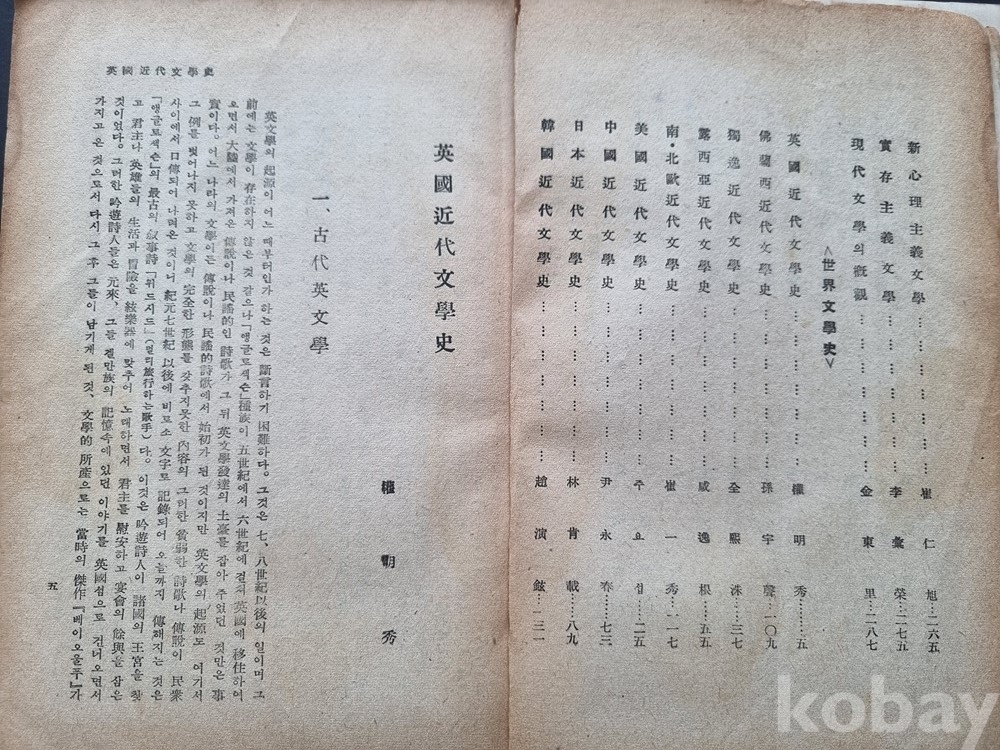 新心理主義文學……………………崔仁旭…二六五
實存主義文學……………………李彙榮…二七五
現代文學의槪觀……………………金東里…二八七
<世界文學史>
英國近代文學史……………………權明秀……五
佛蘭西近代文學史……………………孫宇聲…一〇九
獨逸近代文學史……………………全熙洙…三七
露西亞近代文學史……………………咸逸根…五五
南・北歐近代文學史……………………崔一秀…二一七
美國近代文學史……………………주요섭…二五
中國近代文學史……………………尹永春…七三
日本近代文學史……………………林肯載…八九
韓國近代文學史……………………趙演鉉…三一
英國近代文學史
英國近代文學史
權明秀
一、古代英文學
英文學의 起源이 어느 때부터인가 하는 것은 斷言하기 困難하다。그것은 七、八世紀以後의 일이며 그
前에는 文學이 存在하지 않은 것 같으나「앵글로색슨」種族이 五世紀에서 六世紀에 걸쳐 英國에 移住하여
오면서 大陸에서 가져온 傳說이나 民謠的인 詩歌가 그 뒤 英文學發達의 土臺를 잡아 주었던 것만은 事
實이다。어느 나라의 文學이든 傳說이나 民謠的詩歌에서 始初가 된 것이지만 英文學의 起源도 여기서
그 例를 벗어나지 못하고 文學의 完全한 形態를 갖추지못한 內容의 그러한 貧弱한 詩歌나 傳說이 民衆
사이에서 口傳되어 나려온 것이니 紀元七世紀 以後에 비로소 文字로 記錄되어 오늘까지 傳해지는 것은
「앵글로색슨」의 最古의 叙事詩「위드시드」(멀리旅行하는歌手)다。이것은 吟遊詩人이 諸國의 王宮을 찾
고 君主나 英雄들의 生活과 冒險을 絃樂器에 맞추어 노래하면서 君主를 慰安하고 宴會의 餘興을 삼은
것이었다。그러한 吟遊詩人들은 元來、그들 겔만族의 記憶속에 있던 이야기를 英國섬으로 건너오면서
가지고온 것으로서 다시 그 후 그들이 남기게 된 것、文學的 所産으로는 當時의 傑作『베이오울푸』가
五
kobay